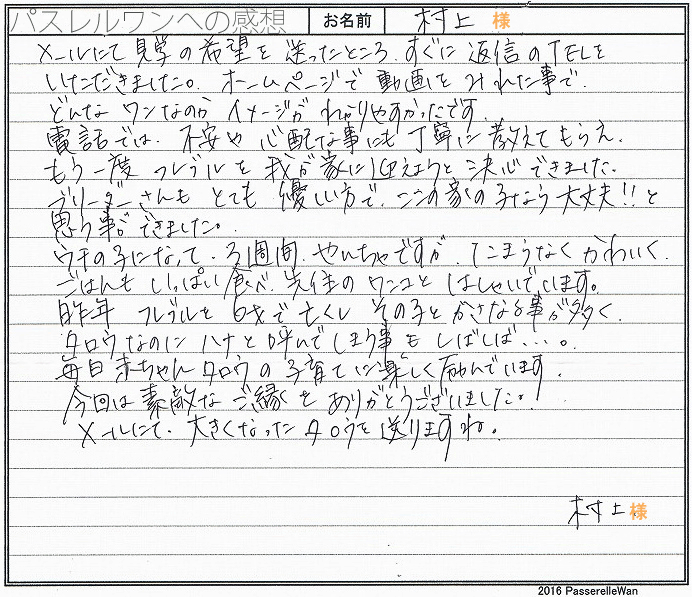 パスレルワンへの感想 お名前 村上 様
メールにて見学の希望を送ったところ、すぐに返信のTELを
いただきました。ホームページで動画をみれた事で、
どんなワンなのかイメージがわかりやすかったです。
電話では、不安や心配な事にも丁寧に教えてもらえ、
もう一度フレブルを我が家に迎えようと決心できました。
ブリーダーさんもとても優しい方で、ここの家の子なら大丈夫!!と
思う事ができました。
ウチの子になって、3週間、やんちゃですが、てこまうなくかわいく、
ごはんもいっぱい食べ、先住のワンコとはしゃいでいます。
昨年フレブルを6才で亡くし その子とかさなる事が多く、
タロウなのにハナと呼んでしまう事もしばしば…。
毎日赤ちゃんタロウの子育てに楽しく励んでいます。
今回は素敵なご縁をありがとうございました。
メールにて、大きくなったタロウを送りますね。
村上 様
2016 PasserelleWan